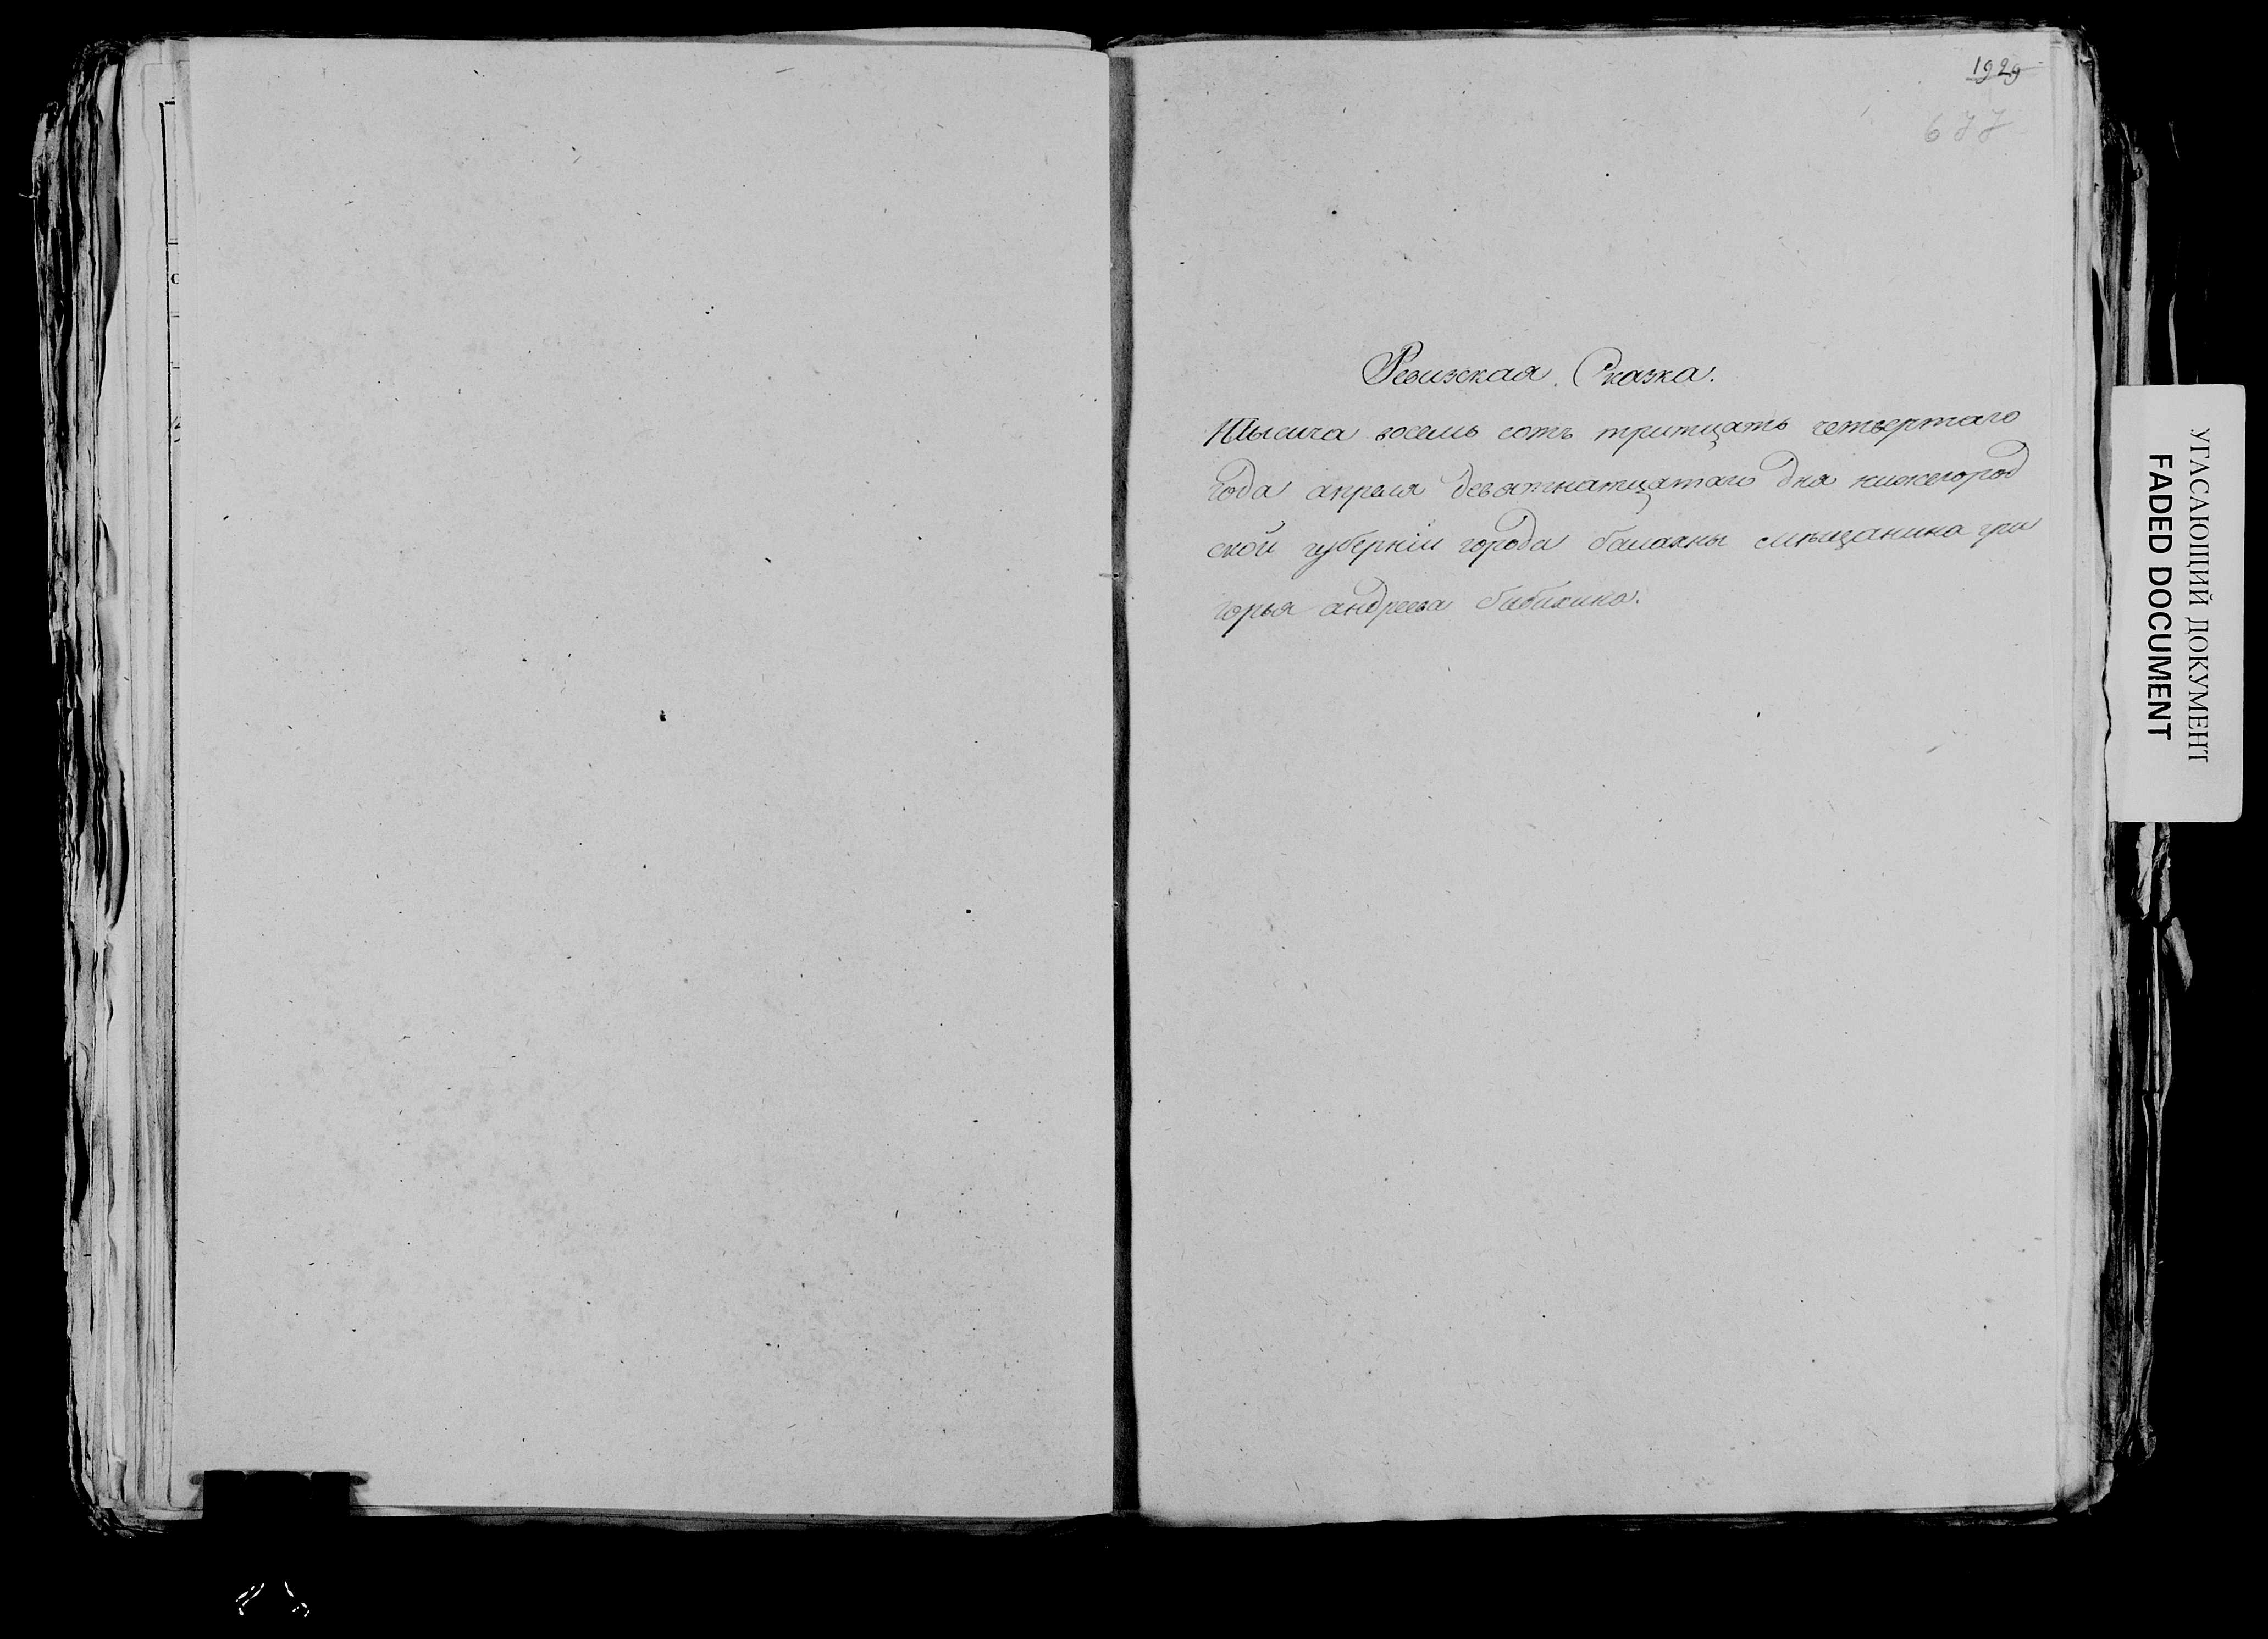 1929
677
Ревизская Сказка.
Тысяча восемь сотъ тритцать четвертаго
года апреля девятнатцатаго дня нижегород
ской губерніи города балахны мѣщанина гри
горья андреева бибихина.
УГАСАЮЩИЙ ДОКУМЕНТ
FADED DOCUMENT